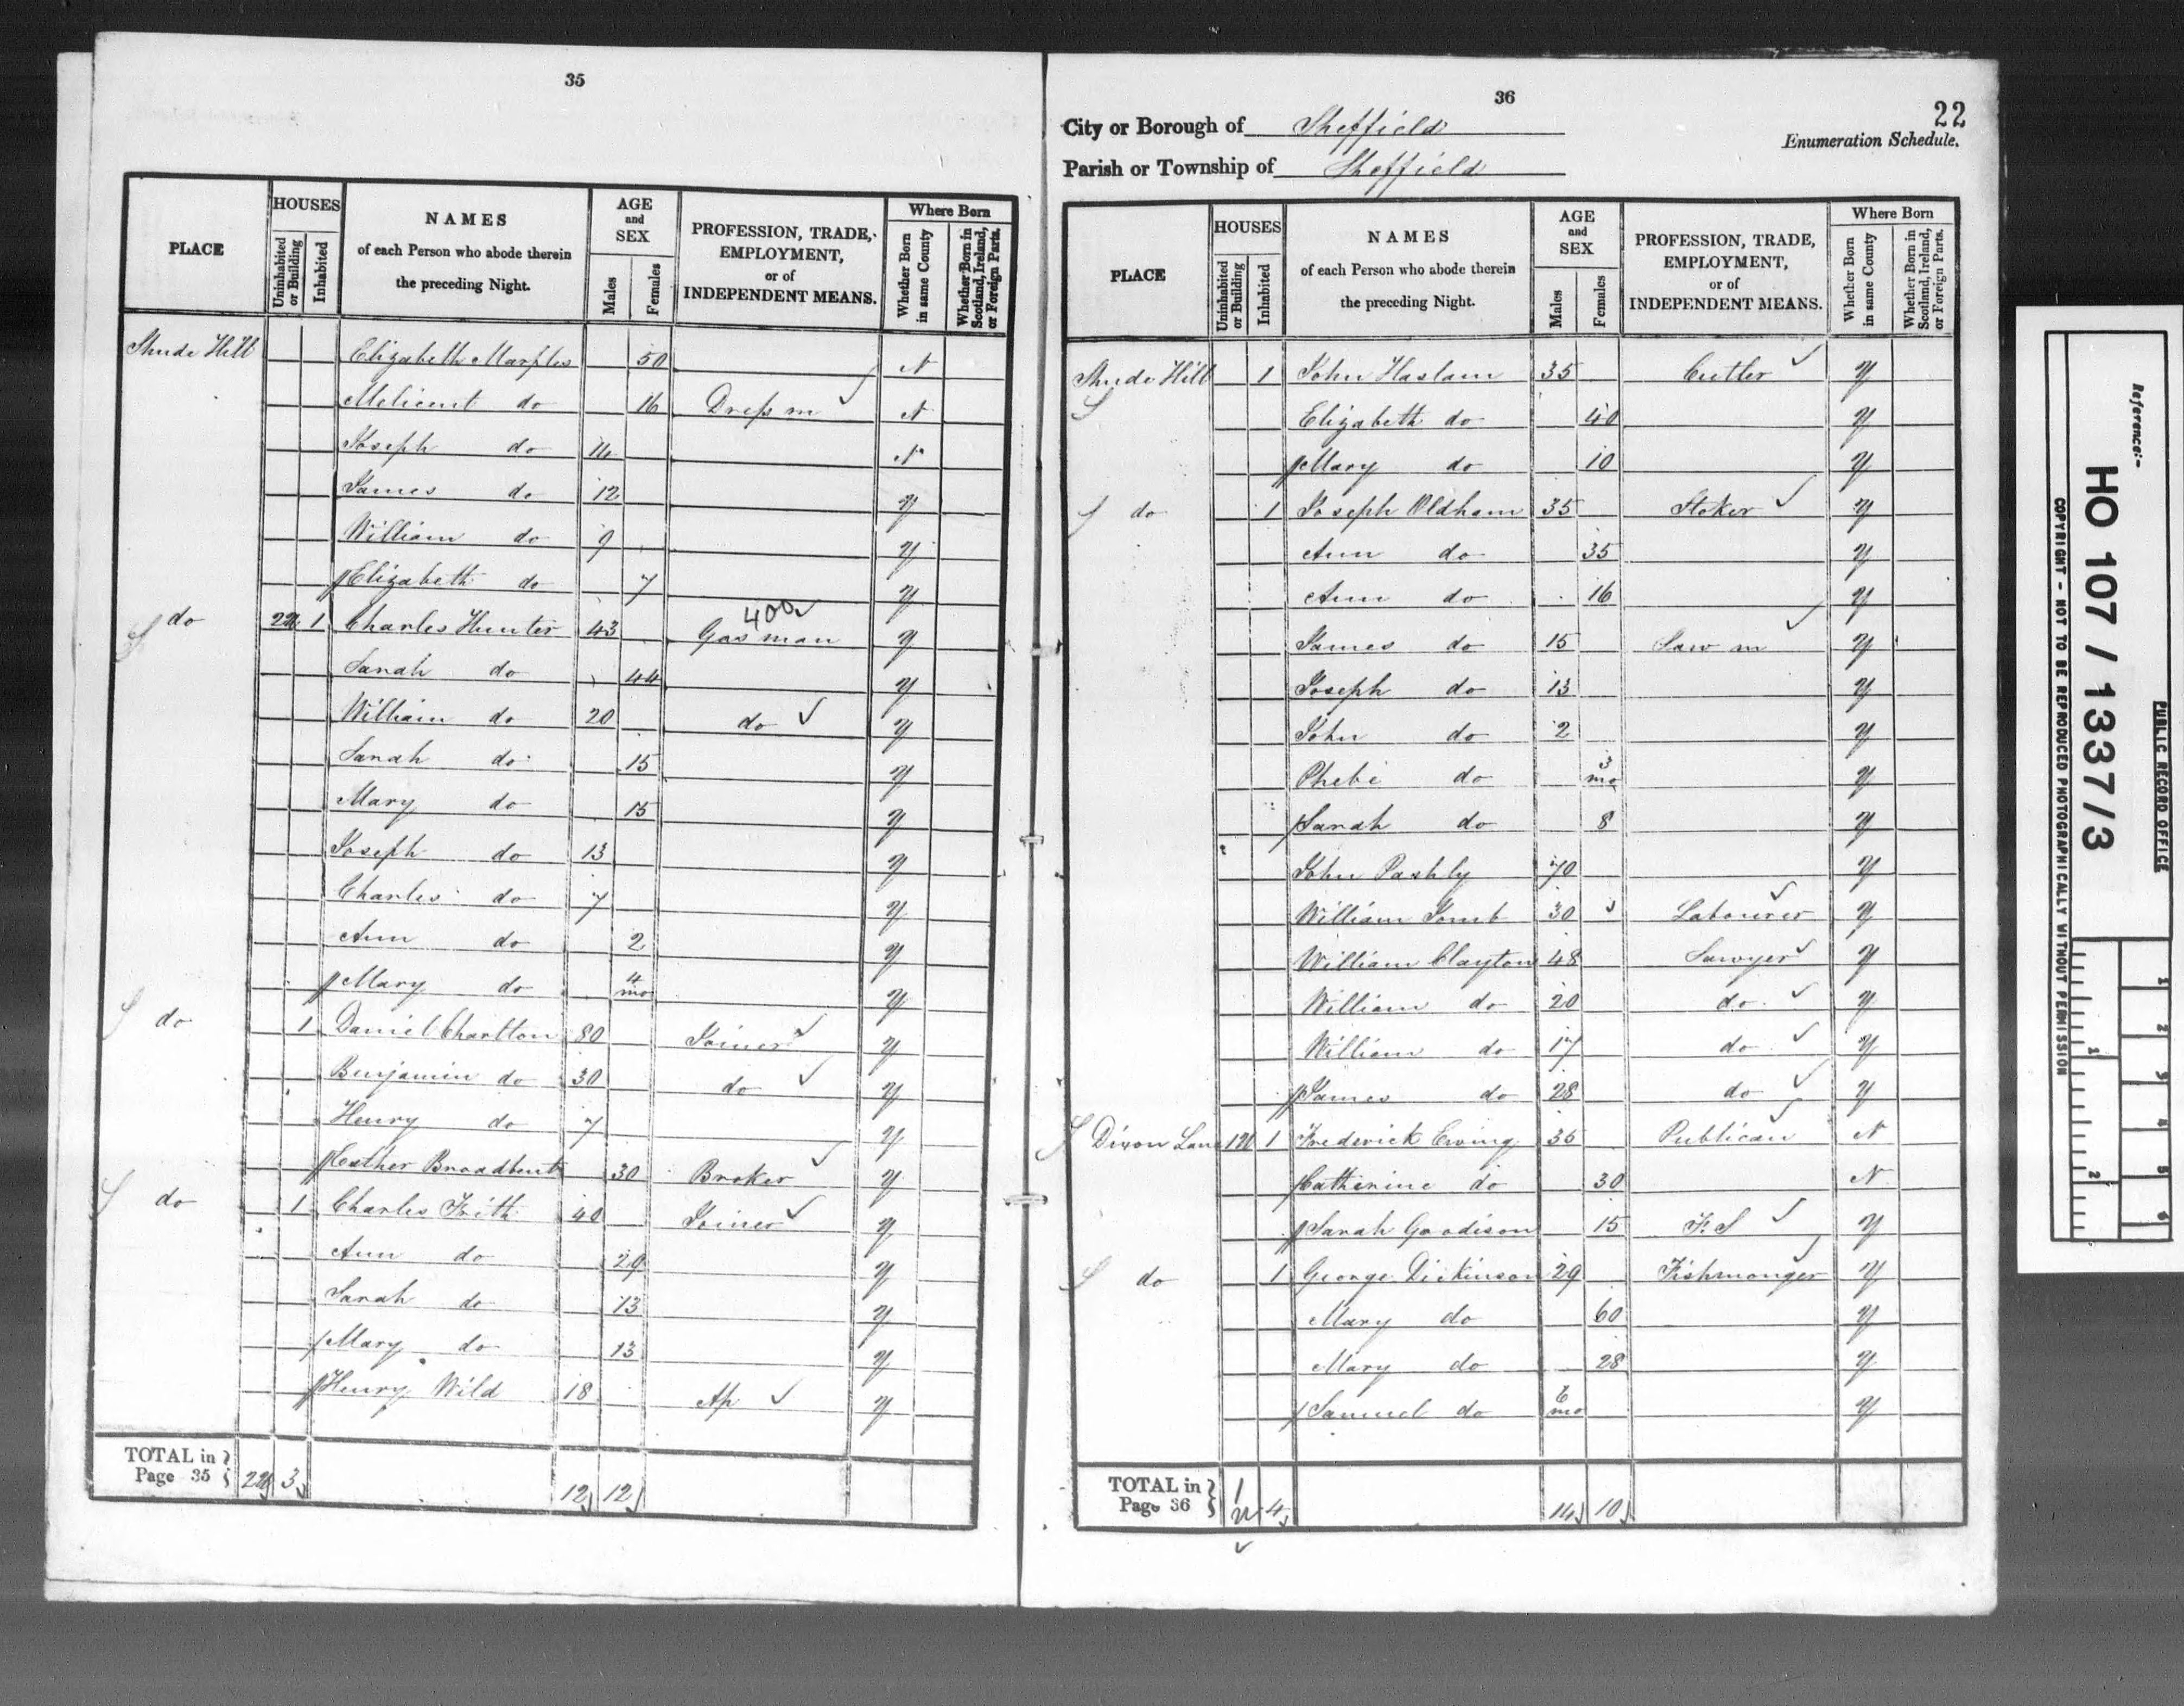 35
PLACE HOUSES NAMES of each Person who abode therein the preceding Night. AGE and SEX PROFESSION, TRADE, EMPLOYMENT, or of INDEPENDENT MEANS. Where Born
Uninhabited or Building Inhabited Males Females Whether Born in same County Whether Born in Scotland, Ireland, or Foreign Parts.
Shude Hill Elizabeth Marples 50 N
Melicent do 16 Dress m N
Joseph do 14 N
James do 12 Y
William do 9 Y
Elizabeth do 7 Y
400
do 1 Charles Hunter 43 Gas man Y
Sarah do 44 Y
William do 20 do Y
Sarah do 15 Y
Mary do 15 Y
Joseph do 13 Y
Charles do 7 Y
Ann do 2 Y
Mary do 4 mo Y
do 1 Daniel Charlton 80 Joiner Y
Benjamin do 30 do Y
Henry do 7 Y
Esther Broadbent 30 Broker Y
do 1 Charles Frith 40 Joiner Y
Ann do 29 Y
Sarah do 13 Y
Mary do 13 Y
Henry Wild 18 Ap Y
TOTAL in Page 35 3 12 12
36
22
City or Borough of Sheffield
Enumeration Schedule.
Parish or Township of Sheffield
PLACE HOUSES NAMES of each Person who abode therein the preceding Night. AGE and SEX PROFESSION, TRADE, EMPLOYMENT, or of INDEPENDENT MEANS. Where Born
Uninhabited or Building Inhabited Males Females Whether Born in same County Whether Born in Scotland, Ireland, or Foreign Parts.
Shude Hill 1 John Haslam 35 Cutler Y
Elizabeth do 40 Y
Mary do 10 Y
do 1 Joseph Oldham 35 Stoker Y
Ann do 35 Y
Ann do 16 Y
James do 15 Saw m Y
Joseph do 13 Y
John do 2 Y
Phebe do 3 mo Y
Sarah do 8 Y
John Pashly 70 Y
William 30 Labourer Y
William Clayton 48 Sawyer Y
William do 20 do Y
William do 17 do Y
James do 28 do Y
Dixon Lane 1 Frederick Ewing 35 Publican N
Catherine do 30 N
Sarah Goodison 15 F.S Y
do 1 George Dickinson 29 Fishmonger Y
Mary do 60 Y
Mary do 28 Y
Samuel do mo Y
TOTAL in Page 36 1 4 14 10
Reference:-
HO 107 / 1337/3
PUBLIC RECORD OFFICE
COPYRIGHT - NOT TO BE REPRODUCED PHOTOGRAPHICALLY WITHOUT PERMISSION
1 2 3 4 5 6
1 2